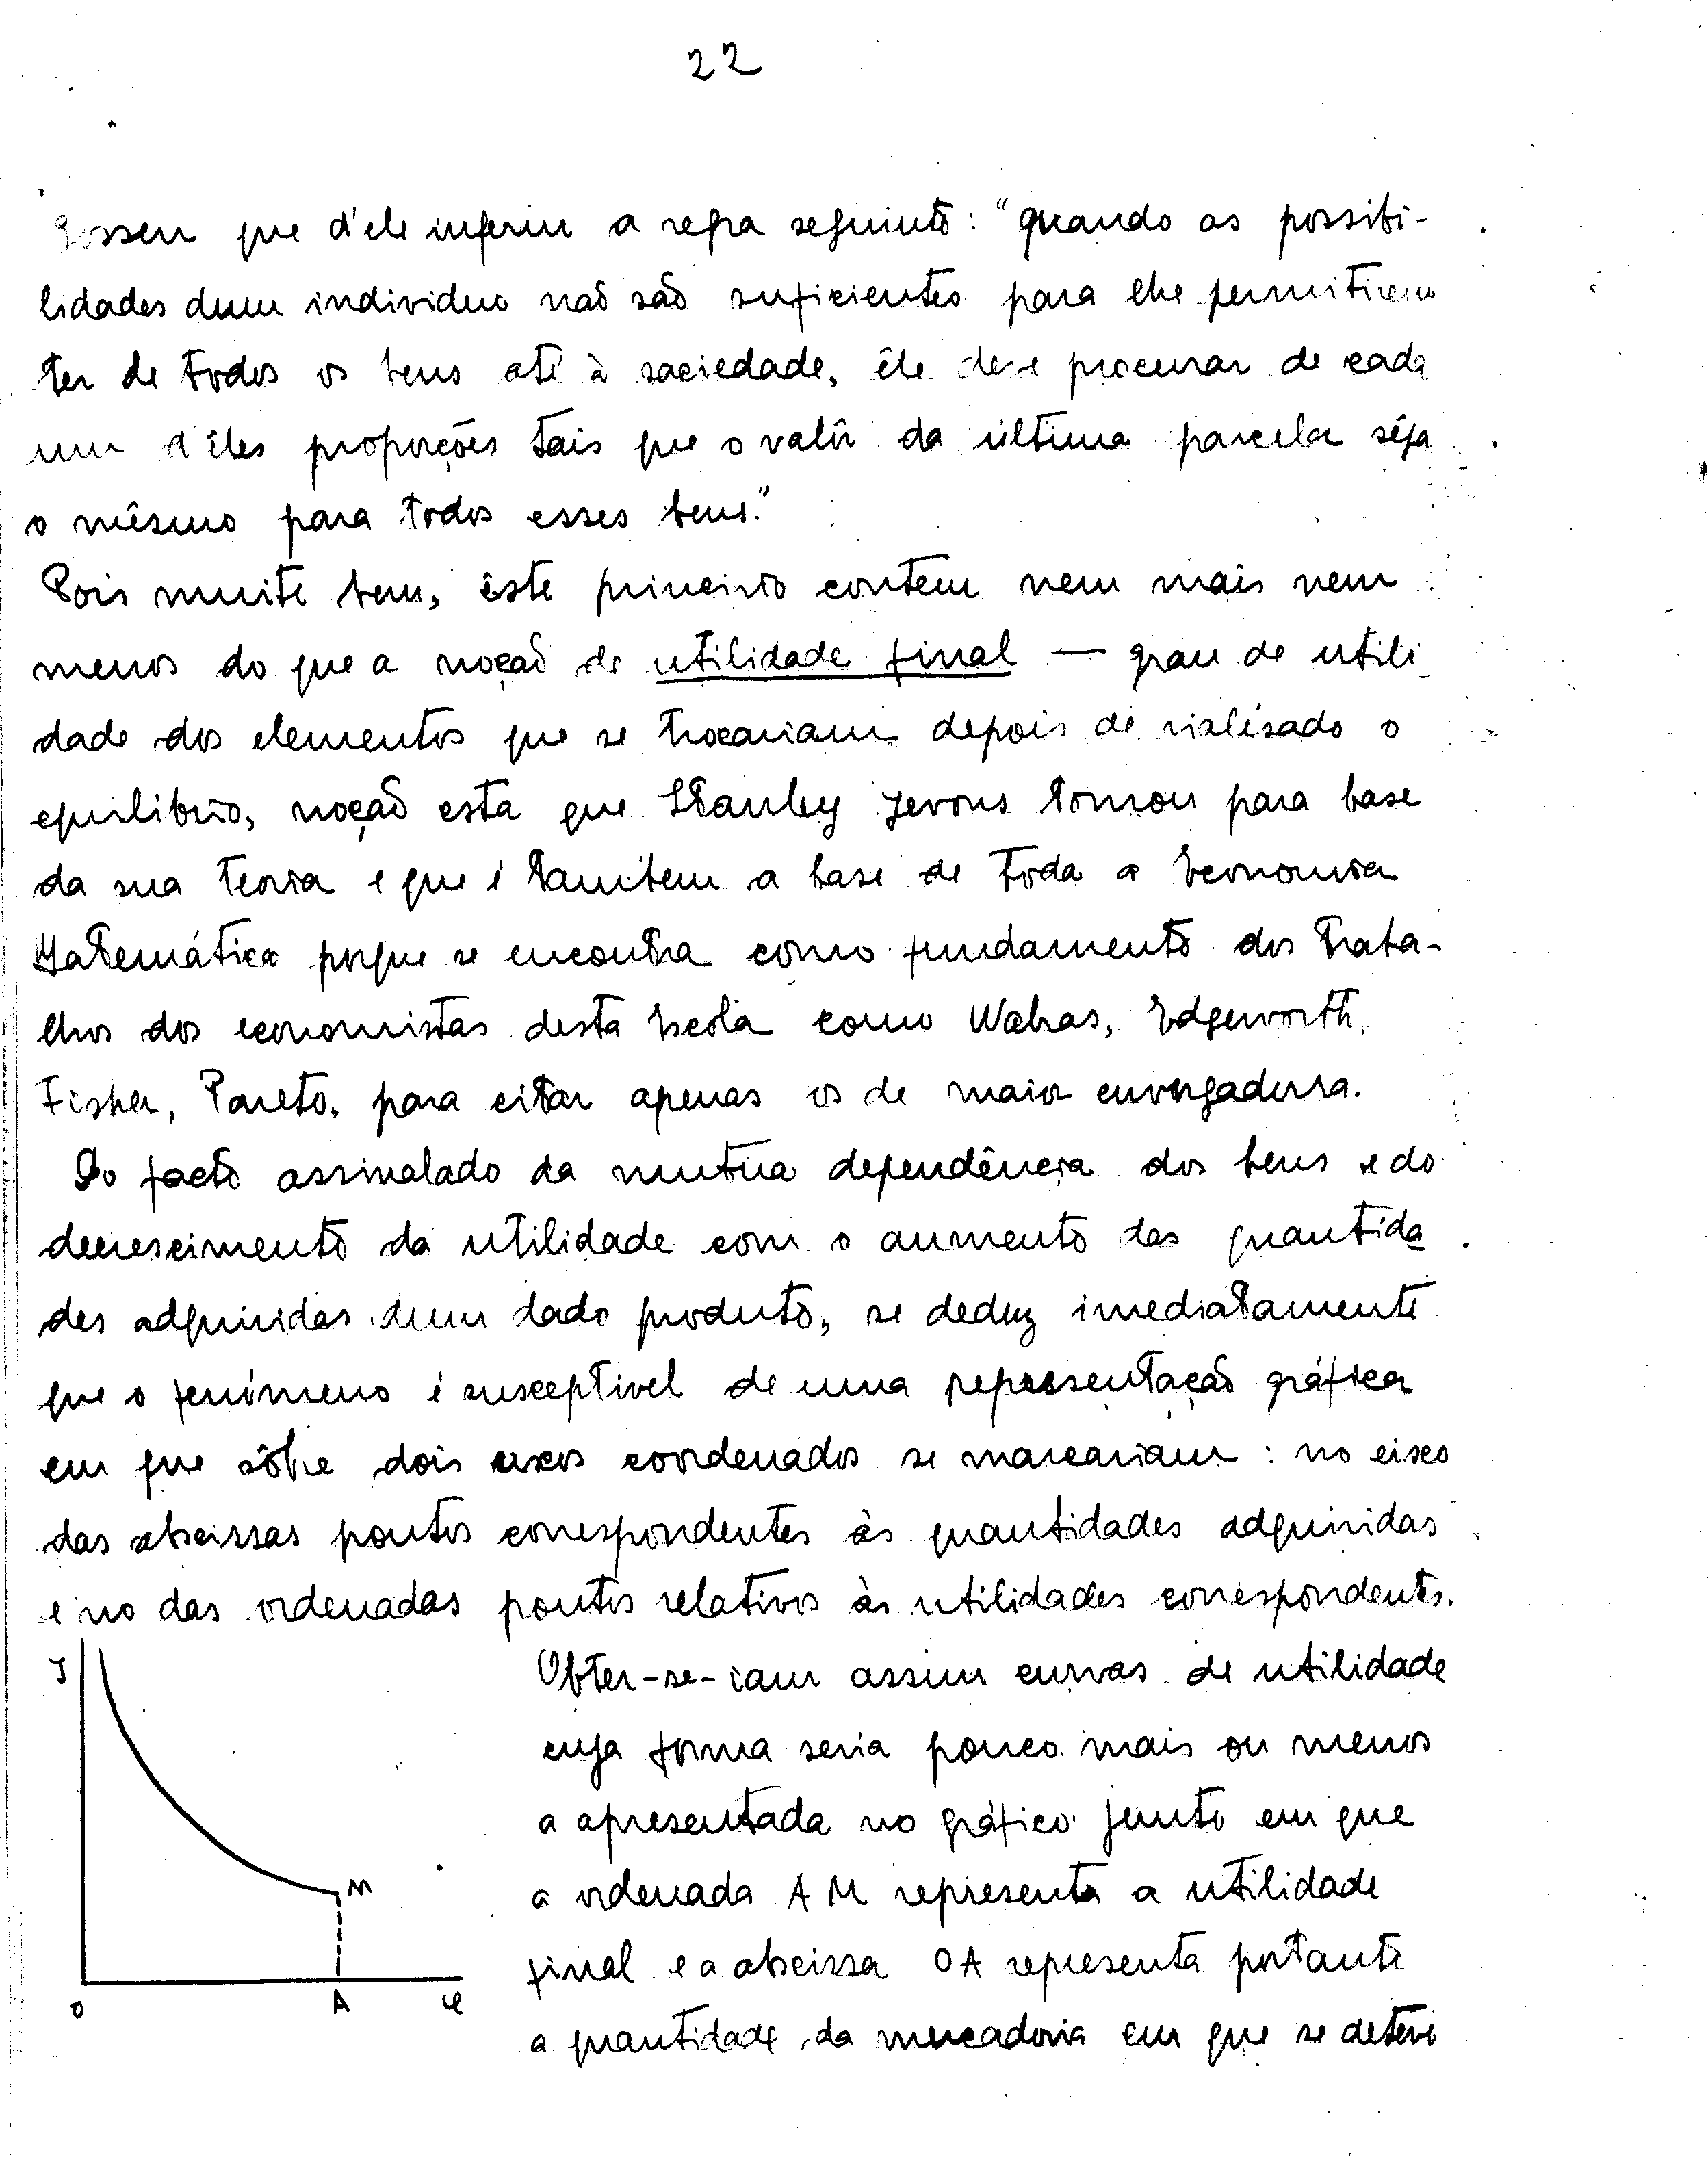 22
Gossen que d'ele inferiu a regra seguinte: "quando as possibi-
lidades dum individuo não são suficientes para lhe permitirem
ter de todos os bens até à saciedade, êle deve procurar de cada
um d'êles proporções tais que o valôr da última parcela sêja
o mêsmo para todos esses bens."
Pois muito bem, êste principio contem nem mais nem
menos do que a noção de utilidade final — grau de utili
dade dos elementos que se trocariam depois de rialisado o
equilibrio, noção esta que Stanley Jevons tomou para base
da sua teoria e que é tambem a base de toda a Economia
Matemática porque se encontra como fundamento dos traba-
lhos dos economistas desta Escola como Walras, Edgeworth,
Fisher, Pareto, para citar apenas os de maior envergadura.
Do facto assinalado da mutua dependência dos bens e do
decrescimento da utilidade com o aumento das quantida
des adquiridas dum dado produto, se deduz imediatamente
que o fenómeno é susceptivel de uma representação gráfica
em que sôbre dois eixos coordenados se marcariam : no eixo
das abcissas pontos correspondentes às quantidades adquiridas
e no das ordenadas pontos relativos às utilidades correspondentes.
Obter-se-iam assim curvas de utilidade
cuja forma seria pouco mais ou menos
a apresentada no gráfico junto em que
a ordenada AM representa a utilidade
final e a abcissa OA representa portanto
a quantidade da mercadoria em que se deteve
M
O A